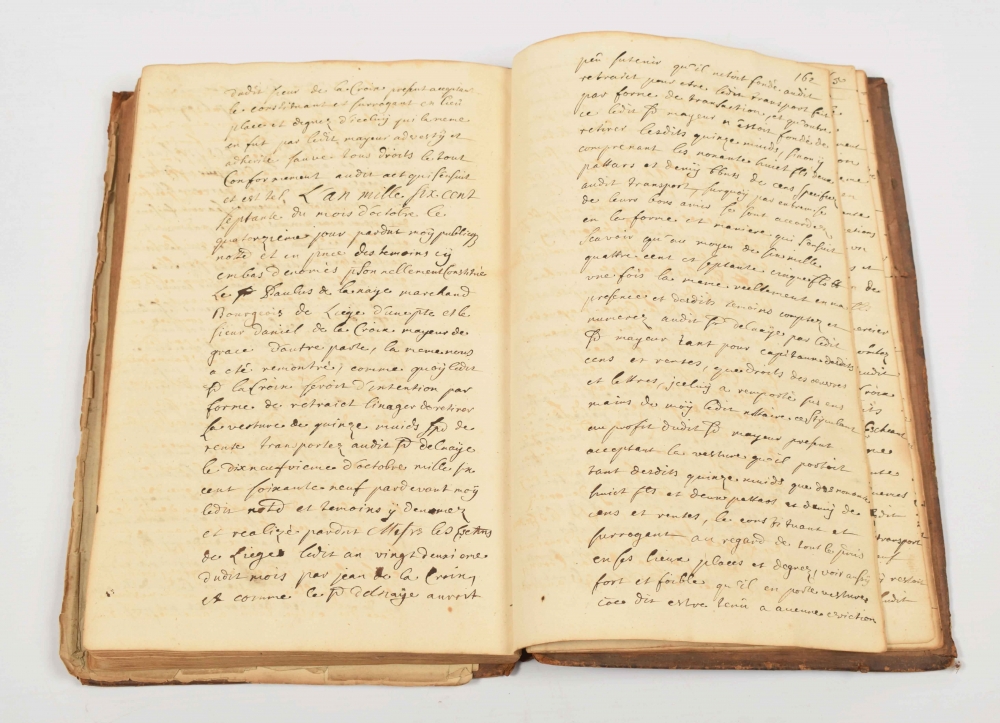 dudit sieur de la Croix present acceptant
le constituant et surrogant en lieu
place et degrez d'iceluy qui la meme
en fut par ledit mayeur advesty et
adherité sauve tous droits le tout
Conformement audit act qui s'ensuit
et est tel L'an mille six cent
septante du mois d'octobre le
quatorzieme jour pardvt moÿ publicq
notre et en pnce des temoins cÿ
embas denomés psonnellement constitué
Le Sr Paulus de lanaye marchand
Bourgeois de Liege d'une pte et le
sieur Daniel de la Croix mayeur de
grace d'autre parte, la meme nous
a eté remontré, comme quoÿ ledit
Sr la Croix seroit d'intention par
forme de retraict linager de retirer
la vesture de quinze muids spl de
rente transportez audit Sr delnaÿe
le dixneufvieme d'octobre mille six
cent soixante neuf pardevant moÿ
ledit notre et temoins ÿ denomez
et realizé pardvt Messrs les
de Liege ledit an vingt deuxieme
dudit mois par jean de la Croix
et comme le Sr delnaÿe auroit
162
peu sutenir qu'il n'etoit fondé audit
retraict pour etre ledit transport fait
par forme de transaction, et qu'outre
ce ledit Sr mayeur n'estoit fondé de
retirer lesdits quinze muids, sinon ÿ
comprenant les nonante huict fls deux
pattars et demÿ bbnts de cens specifiez
audit transport, surquoÿ par entremise
de leurs bons amis se sont accordez
en la forme et maniere qui s'ensuit
Scavoir qu'au moyen de six mille
quattre cent et septante cinque fls
une fois la meme reellement en nre
presence et desdits temoins comptez et
numerez audit Sr delnaÿe par ledit
Sr mayeur tant pour capitaux desdits
cens et rentes, que droits des oeuvres
et lettres, iceluy a reporté sus ens
mains de moÿ ledit nottaire ce stipulant
au profit dudit Sr mayeur present
acceptant la vesture qu'il portoit
tant desdits quinze muids que des nonante
huict fls et deux pattars et demÿ de
cens et rentes, le constituant et
surrogant au regard de tout le
en ses lieux places et degrez, voir
fort et foible qu'il en porte vesture
sans dit estre tenu a aucune eviction